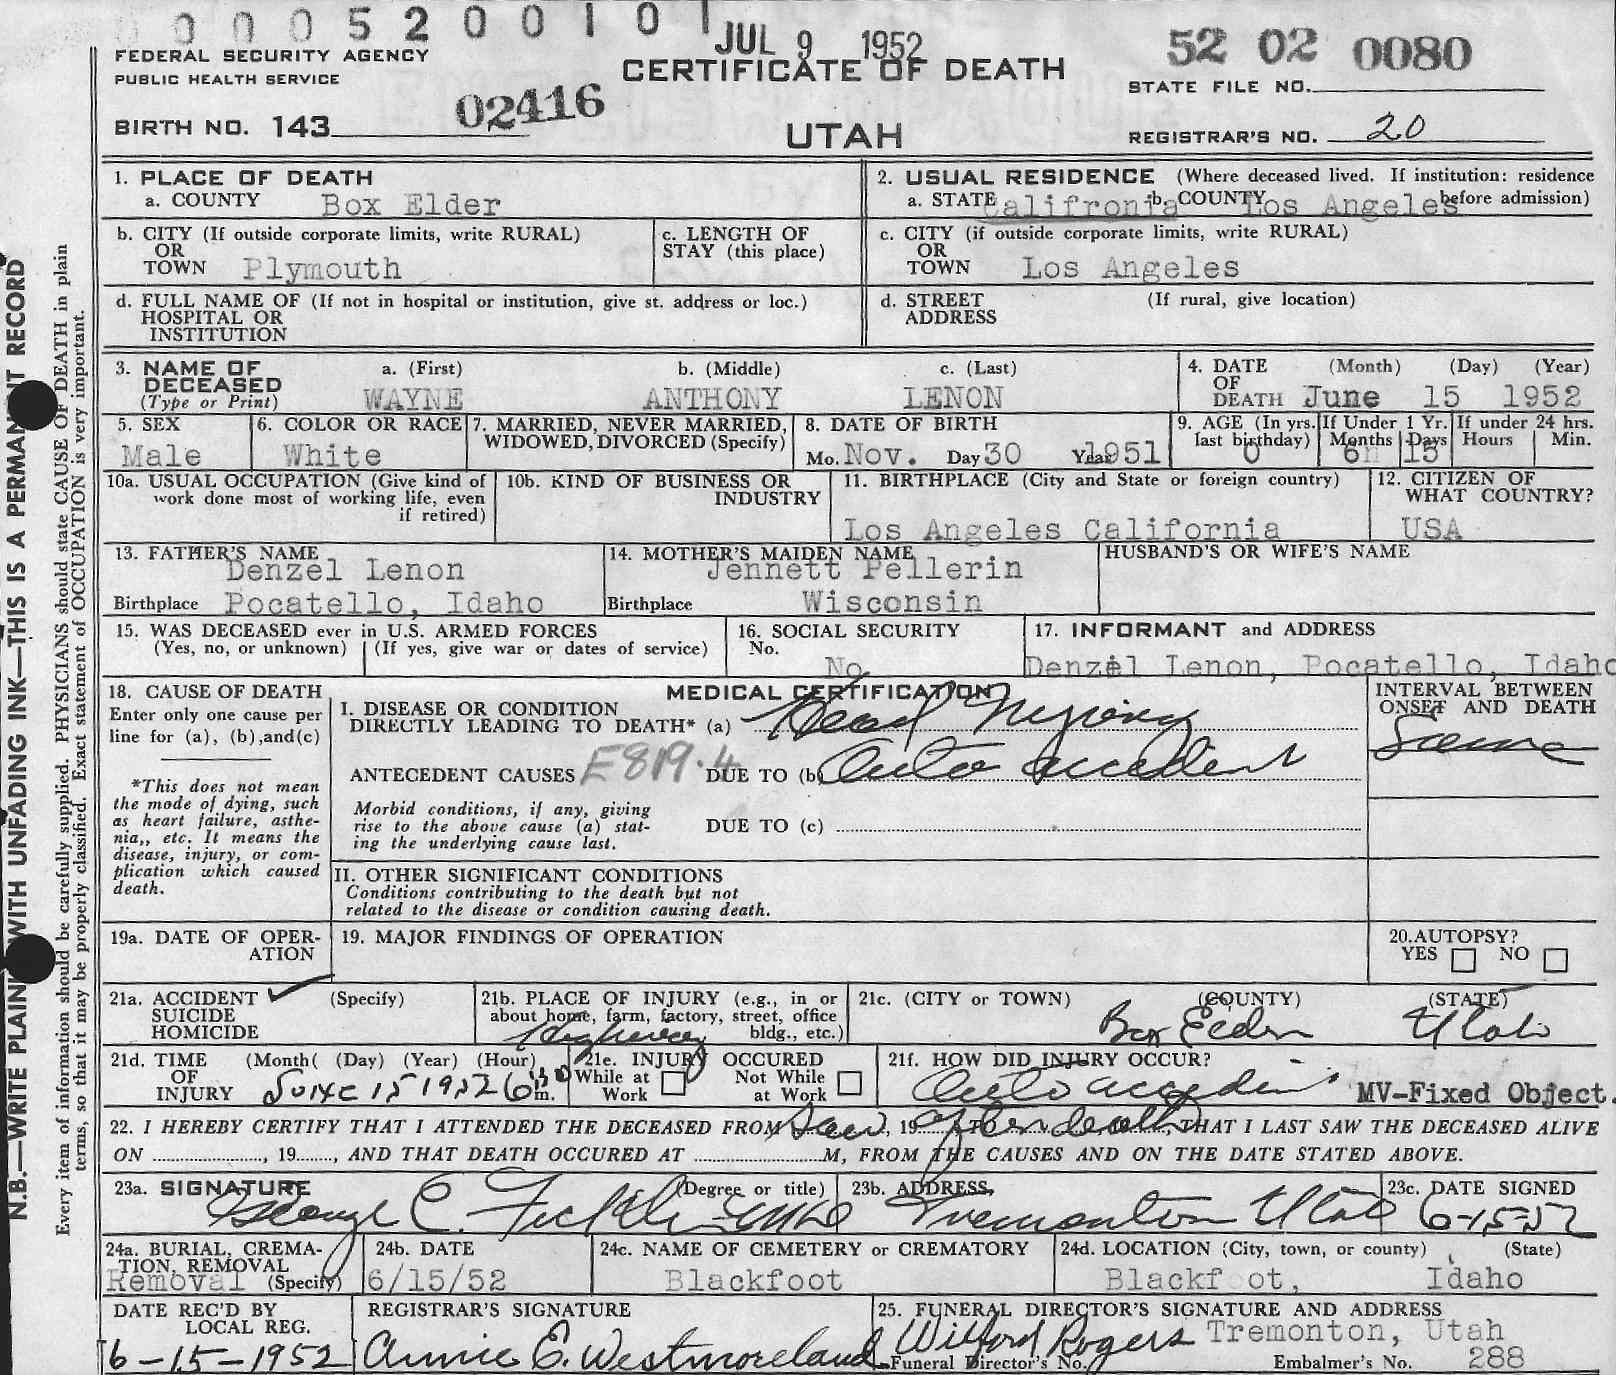 0 0 0 5 2 0 0 1 0 1
JUL 9 1952
52 02 0080
FEDERAL SECURITY AGENCY
PUBLIC HEALTH SERVICE
CERTIFICATE OF DEATH
STATE FILE NO.
BIRTH NO. 143 02416
UTAH
REGISTRAR'S NO. 20
1. PLACE OF DEATH
a. COUNTY Box Elder
2. USUAL RESIDENCE (Where deceased lived. If institution: residence before admission)
a. STATE Califronia b. COUNTY Los Angeles
b. CITY (If outside corporate limits, write RURAL)
OR
TOWN Plymouth
c. LENGTH OF
STAY (this place)
c. CITY (if outside corporate limits, write RURAL)
OR
TOWN Los Angeles
d. FULL NAME OF (If not in hospital or institution, give st. address or loc.)
HOSPITAL OR
INSTITUTION
d. STREET (If rural, give location)
ADDRESS
3. NAME OF DECEASED
(Type or Print)
a. (First) b. (Middle) c. (Last)
WAYNE ANTHONY LENON
4. DATE OF DEATH (Month) (Day) (Year)
June 15 1952
5. SEX
Male
6. COLOR OR RACE
White
7. MARRIED, NEVER MARRIED,
WIDOWED, DIVORCED (Specify)
8. DATE OF BIRTH
Mo. Nov. Day 30 Year 1951
9. AGE (In yrs. last birthday) 0
If Under 1 Yr. Months 6 Days 15
If under 24 hrs. Hours Min.
10a. USUAL OCCUPATION (Give kind of
work done most of working life, even
if retired)
10b. KIND OF BUSINESS OR
INDUSTRY
11. BIRTHPLACE (City and State or foreign country)
Los Angeles California
12. CITIZEN OF
WHAT COUNTRY?
USA
13. FATHER'S NAME
Denzel Lenon
Birthplace Pocatello, Idaho
14. MOTHER'S MAIDEN NAME
Jennett Pellerin
Birthplace Wisconsin
HUSBAND'S OR WIFE'S NAME
15. WAS DECEASED ever in U.S. ARMED FORCES
(Yes, no, or unknown) (If yes, give war or dates of service)
16. SOCIAL SECURITY
No.
No
17. INFORMANT and ADDRESS
Denzel Lenon, Pocatello, Idaho
18. CAUSE OF DEATH
Enter only one cause per
line for (a), (b), and (c)
*This does not mean
the mode of dying, such
as heart failure, asthe-
nia,, etc. It means the
disease, injury, or com-
plication which caused
death.
MEDICAL CERTIFICATION
I. DISEASE OR CONDITION
DIRECTLY LEADING TO DEATH* (a) Head Injury
ANTECEDENT CAUSES E819.4 DUE TO (b) Auto accident
Morbid conditions, if any, giving
rise to the above cause (a) stat-
ing the underlying cause last.
DUE TO (c)
INTERVAL BETWEEN
ONSET AND DEATH
Same
II. OTHER SIGNIFICANT CONDITIONS
Conditions contributing to the death but not
related to the disease or condition causing death.
19a. DATE OF OPER-
ATION
19. MAJOR FINDINGS OF OPERATION
20. AUTOPSY?
YES NO
21a. ACCIDENT ✓ (Specify)
SUICIDE
HOMICIDE
21b. PLACE OF INJURY (e.g., in or
about home, farm, factory, street, office
bldg., etc.)
Highway
21c. (CITY or TOWN) (COUNTY) (STATE)
Box Elder Utah
21d. TIME OF INJURY (Month( (Day) (Year) (Hour)
June 15 1952 6 m.
21e. INJURY OCCURED
While at Work Not While at Work
21f. HOW DID INJURY OCCUR?
Auto accident MV-Fixed Object.
22. I HEREBY CERTIFY THAT I ATTENDED THE DECEASED FROM Saw, 19 TO after death, THAT I LAST SAW THE DECEASED ALIVE
ON , 19 , AND THAT DEATH OCCURED AT M, FROM THE CAUSES AND ON THE DATE STATED ABOVE.
23a. SIGNATURE (Degree or title)
George C. Ficklin MD
23b. ADDRESS
Tremonton Utah
23c. DATE SIGNED
6-15-52
24a. BURIAL, CREMA-
TION, REMOVAL
Removal (Specify)
24b. DATE
6/15/52
24c. NAME OF CEMETERY or CREMATORY
Blackfoot
24d. LOCATION (City, town, or county) (State)
Blackf ot, Idaho
DATE REC'D BY
LOCAL REG.
6-15-1952
REGISTRAR'S SIGNATURE
Annie E. Westmoreland
25. FUNERAL DIRECTOR'S SIGNATURE AND ADDRESS
Wilford Rogers Tremonton, Utah
Funeral Director's No. Embalmer's No. 288
N.B.—WRITE PLAINLY WITH UNFADING INK—THIS IS A PERMANENT RECORD
Every item of information should be carefully supplied. PHYSICIANS should state CAUSE OF DEATH in plain
terms, so that it may be properly classified. Exact statement of OCCUPATION is very important.